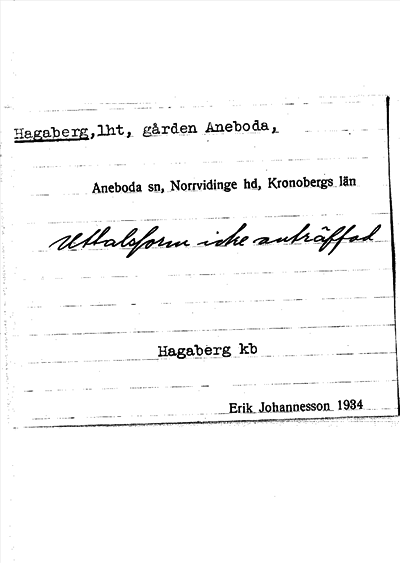 Hagaberg, lht, gården Aneboda,
Aneboda sn, Norrvidinge hd, Kronobergs län
Uttalsform icke anträffad
Hagaberg kb
Erik Johannesson 1934